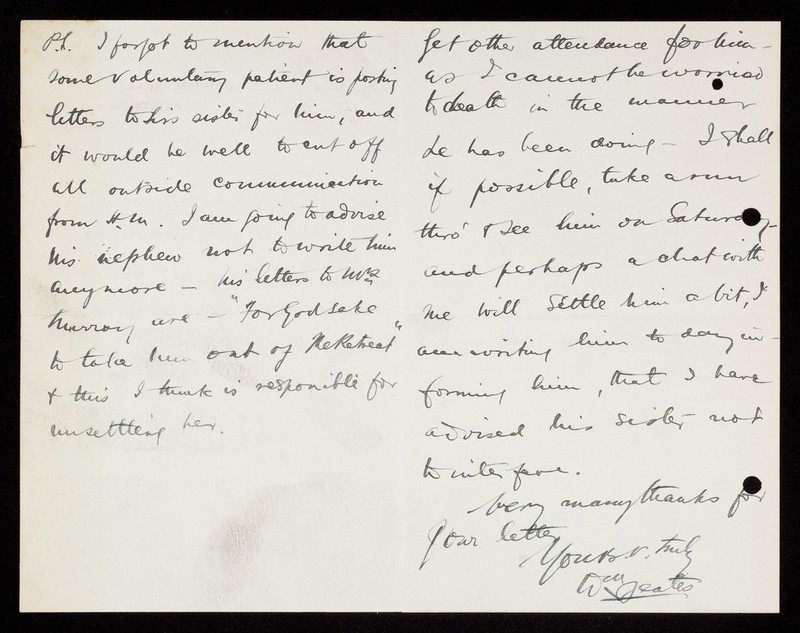 P.S. I forgot to mention that
some voluntary patient is posting
letters to his sister for him, and
it would be well to cut off
all outside communication
from H.M. I am going to advise
his nephew not to write him
anymore — his letters to Mrs
Murray are — "For God sake
to take him out of The Retreat"
& this I think is responible for
unsettling her.
get other attendance for him —
as I cannot be worried
to death in the manner
he has been doing — I shall
if possible, take a run
thro' & see him on Saturday —
and perhaps a chat with
me will settle him a bit, I
am writing him to day in-
forming him, that I have
advised his sister not
to interfere.
Very many thanks for
your letter
Yours v. truly
Wm Yeates